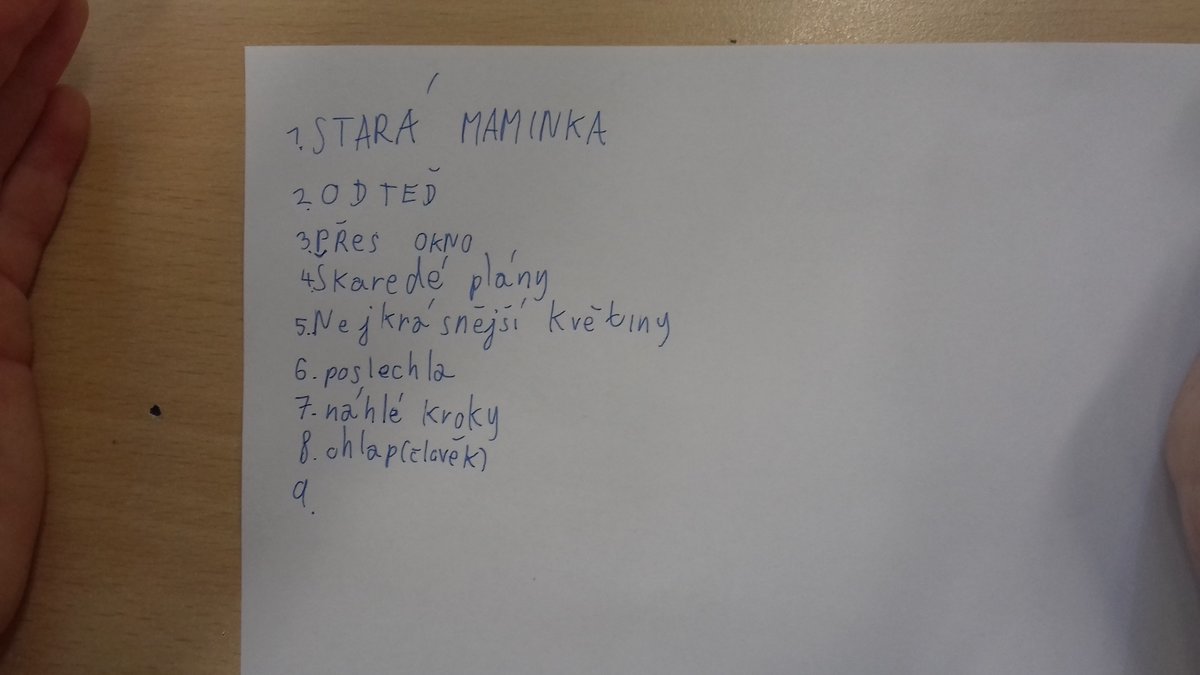 1. STARÁ MAMINKA
2. OD TEĎ
3. PŘES OKNO
4. Škaredé plány
5. Nejkrásnější květiny
6. poslechla
7. náhlé kroky
8. chlap (člověk)
9.